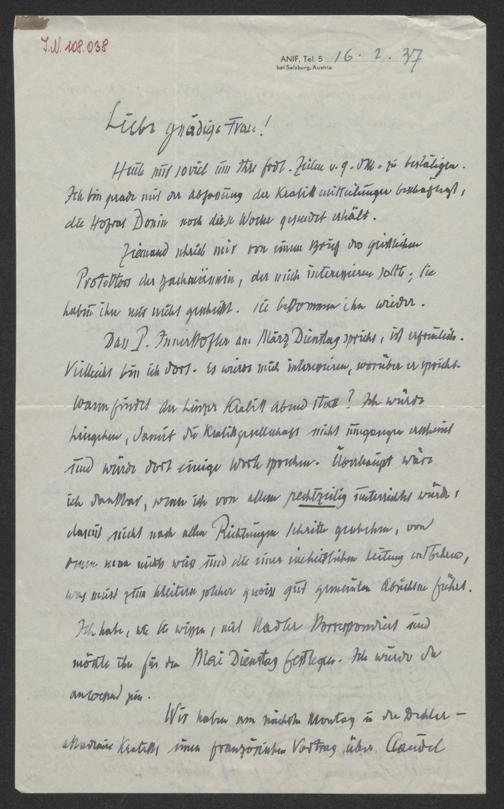 I.N. 108.038
ANIF, Tel. 5 16. 2. 37
bei Salzburg, Austria
Liebe gnädige Frau!
Heute nur soviel um Ihre frdl. Zeilen v. 9. d. M. zu bestätigen.
Ich bin gerade mit der Abfassung der Kralikmitteilungen beschäftigt,
die Hofrat Donin noch diese Woche gesendet erhält.
Ziemand schrieb mir von einem Brief des geistlichen
Protektors der, der mich interessieren sollte; Sie
haben ihn mir nicht geschickt. Sie bekommen ihn wieder.
Dass P. Innerkofler am März Dienstag spricht, ist erfreulich.
Vielleicht bin ich dort. Es würde mich interessieren, worüber er spricht.
Wann findet der Linzer Kralik Abend statt? Ich würde
hingehen, damit die Kralikgesellschaft nicht umgangen erscheint
und würde dort einige Worte sprechen. Überhaupt wäre
ich dankbar, wenn ich von allem rechtzeitig unterrichtet würde,
damit nicht nach allen Richtungen Schritte geschehen, von
denen man nichts weiss und die einer einheitlichen Leitung entbehren,
was meist zum Scheitern solcher gewiss gut gemeinten Absichten führt.
Ich habe, wie Sie wissen, mit Nadler korrespondiert und
möchte ihn für den Mai Dienstag festlegen. Ich würde da
anwesend sein.
Wir haben am nächsten Montag in der
Kraliks einen französischen Vortrag über Claudel